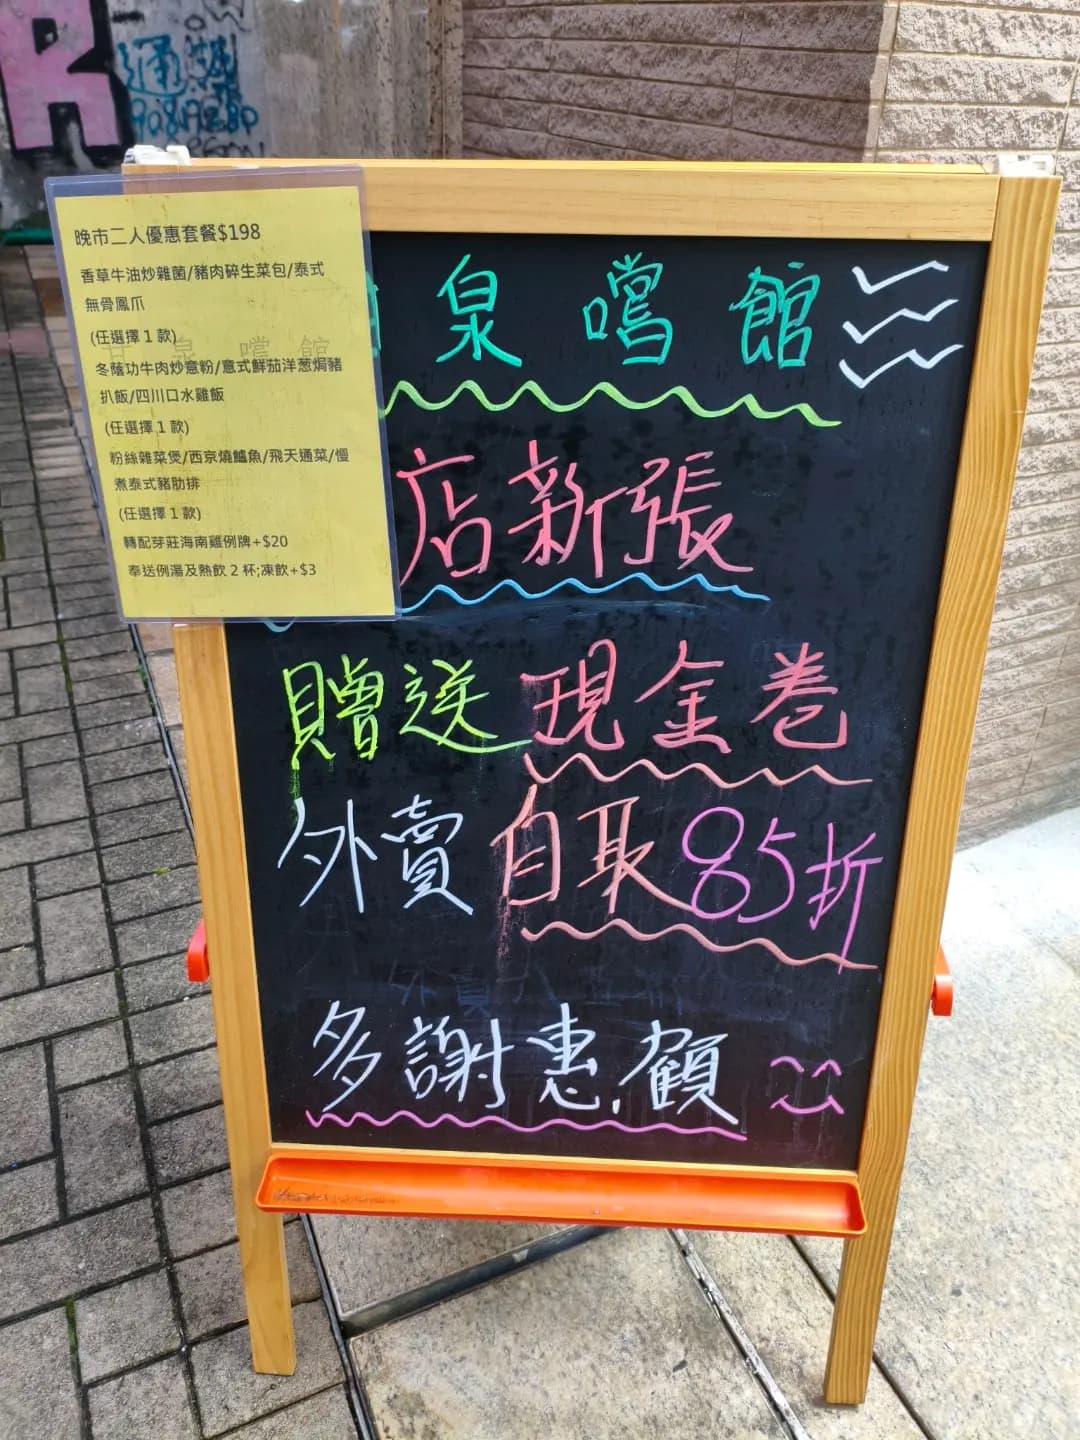 R
通渠
晚市二人優惠套餐$198
香草牛油炒雜菌/豬肉碎生菜包/泰式
無骨鳳爪
(任選擇1款)
甘泉嚐館
冬蔭功牛肉炒意粉/意式鮮茄洋葱焗豬
扒飯/四川口水雞飯
(任選擇1款)
粉絲雜菜煲/西京燒鱸魚/飛天通菜/慢
煮泰式豬肋排
(任選擇1款)
轉配芽莊海南雞例牌+$20
奉送例湯及熱飲2杯;凍飲+$3
泉嚐館
店新張
贈送現金卷
外賣自取85折
多謝惠顧